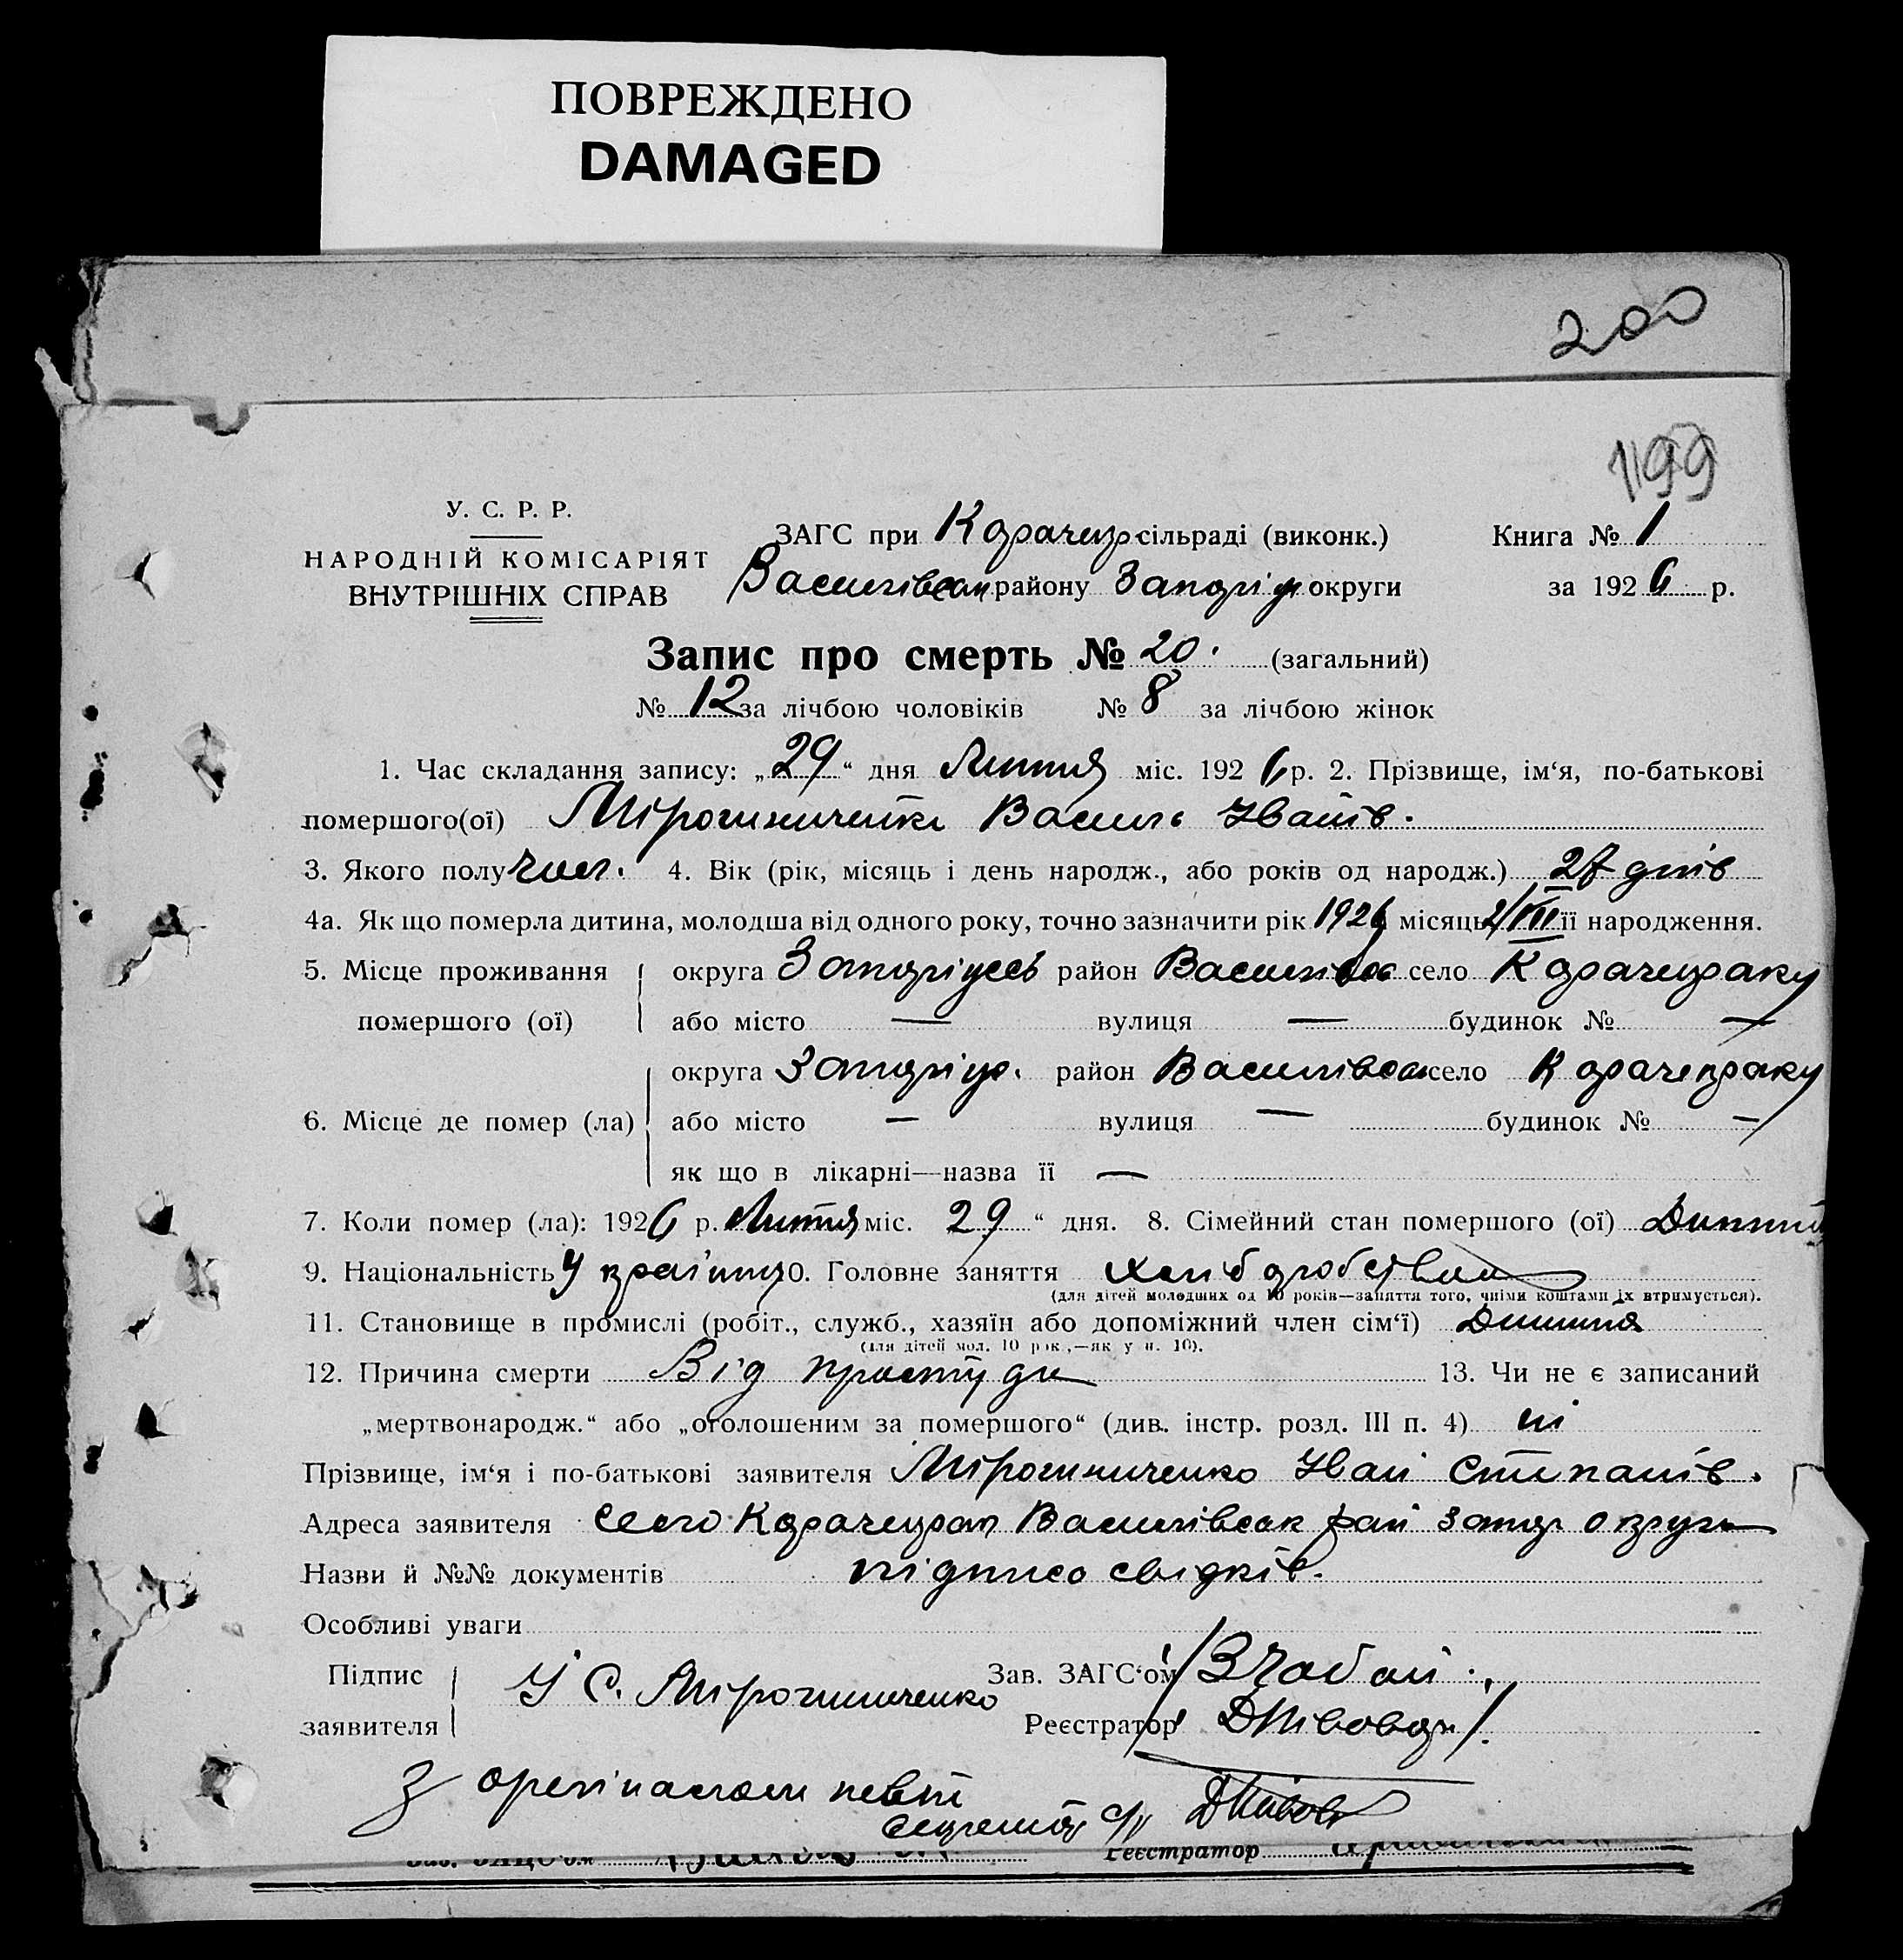 ПОВРЕЖДЕНО
DAMAGED
200
199
У. С. Р. Р.
НАРОДНІЙ КОМІСАРІЯТ
ВНУТРІШНІХ СПРАВ
ЗАГС при Карачекр сільраді (виконк.) Книга № 1
Василівськ району Запоріж округи за 1926 р.
Запис про смерть № 20. (загальний)
№ 12 за лічбою чоловіків № 8 за лічбою жінок
1. Час складання запису: „29“ дня Липня міс. 1926 р. 2. Прізвище, ім‘я, по-батькові
помершого(ої) Мірошниченко Василь Іванів.
3. Якого полу чол. 4. Вік (рік, місяць і день народж., або років од народж.) 27 днів
4а. Як що померла дитина, молодша від одного року, точно зазначити рік 1926 місяць 2/VII її народження.
5. Місце проживання
помершого (ої)
округа Запоріжськ район Василівськ село Карачекраку
або місто — вулиця — будинок № —
6. Місце де помер (ла)
округа Запоріж. район Василівськ село Карачекраку
або місто — вулиця — будинок № —
як що в лікарні—назва її —
7. Коли помер (ла): 1926 р. Липня міс. 29 “ дня. 8. Сімейний стан помершого (ої) Дитина
9. Національність Українц 10. Головне заняття хліборобство
(для дітей молодших од 10 років—заняття того, чиїми коштами їх втримується).
11. Становище в промислі (робіт., служб., хазяїн або допоміжний член сім‘ї) Дитина
(для дітей мол. 10 рок.,—як у п. 10).
12. Причина смерти Від простуди 13. Чи не є записаний
„мертвонародж.“ або „оголошеним за помершого“ (див. інстр. розд. III п. 4) ні
Прізвище, ім‘я і по-батькові заявителя Мірошниченко Іван Степанів.
Адреса заявителя село Карачекрак Василівськ рай Запор округи
Назви й №№ документів підписо свідків.
Особливі уваги
Підпис
заявителя
І С. Мірошниченко
Зав. ЗАГС‘ом /Зчабан.
Реєстратор
З оригіналом певні
Секретар с/р
Реєстратор